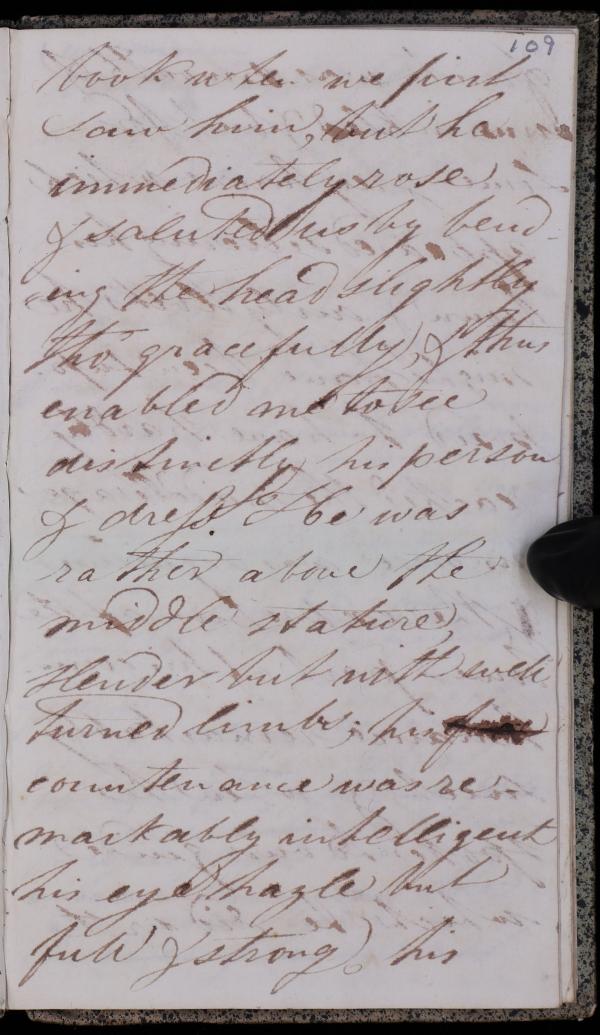 109
book when we first
saw him, but he
immediately rose
& saluted us by bend-
ing the head slightly
tho' gracefully, & thus
enabled me to see
distinctly his person
& dress. He was
rather above the
middle stature,
slender but with well
turned limbs; his
countenance was re-
markably intelligent
his eye hazle but
full & strong, his